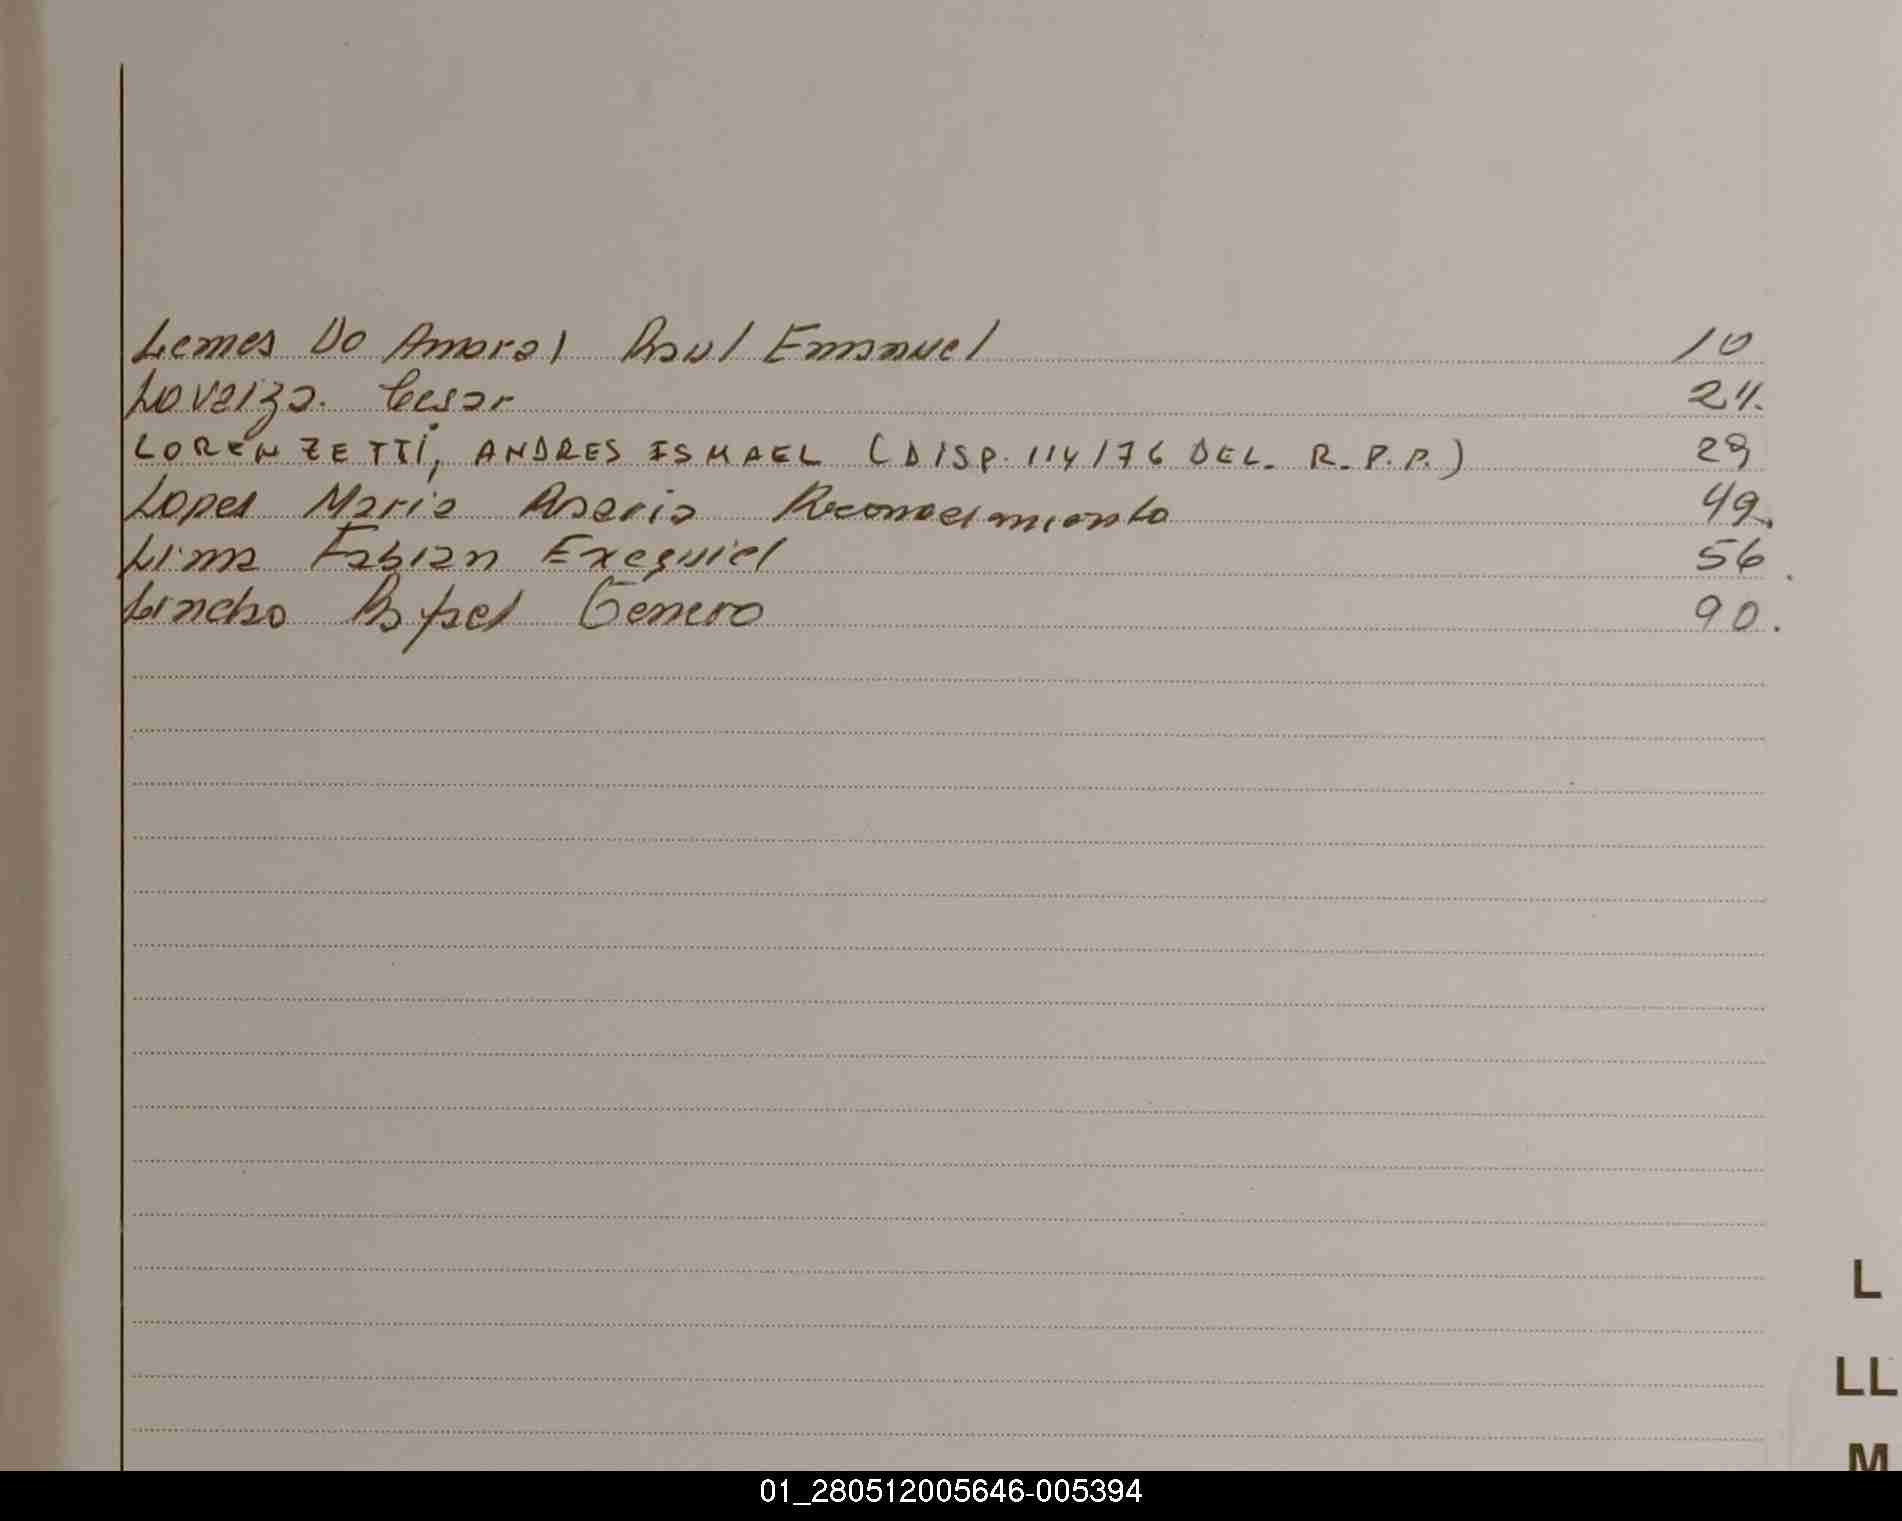 Lemes Do Amaral Raul Emanuel 10
Loveiza. Cesar 21.
LORENZETTI, ANDRES ISMAEL (DISP. 114/76 DEL. R.P.P.) 29
Lopes Maria Aseria Reconocimiento 49.
Lima Fabian Exequiel 56.
Lincho Genero 90.
L
LL
M
01_280512005646-005394